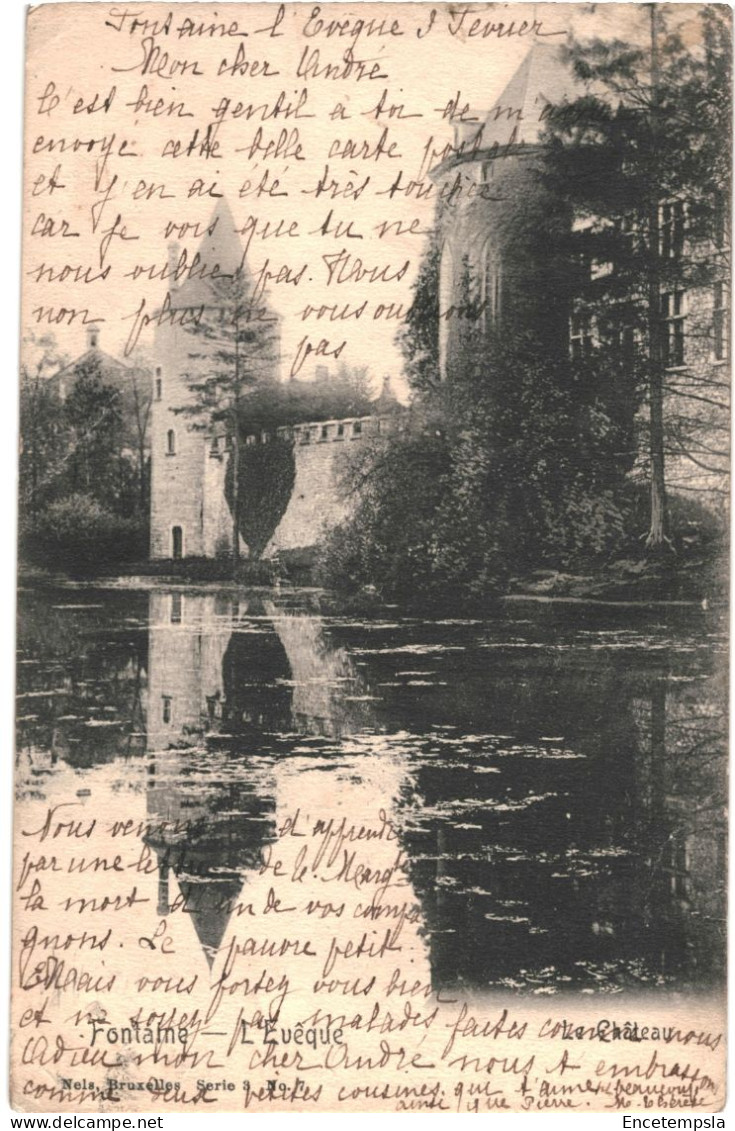 Fontaine l'Evêque 3 Fevrier
Mon cher André
C'est bien gentil a toi de m'avoir
envoyé cette belle carte postale
et j'en ai été très touchée
car je vois que tu ne
nous oublie pas. Nous
non plus vous oublions
pas
Nous venons d'apprendre
par une lettre de le. Marg
la mort d'un de vos compa
gnons. Le pauvre petit.
Mais vous fortez vous bien
et ne soyez pas malades faites comme nous
Fontaine — L'Evêque Le Château
Adieu mon cher André nous t embrassons
Nels, Bruxelles, Serie 3, No. 7
comme deux petites cousines qui t'aiment beaucoup
ainsi que Pierre. M. Thérèse
© Encetempsla